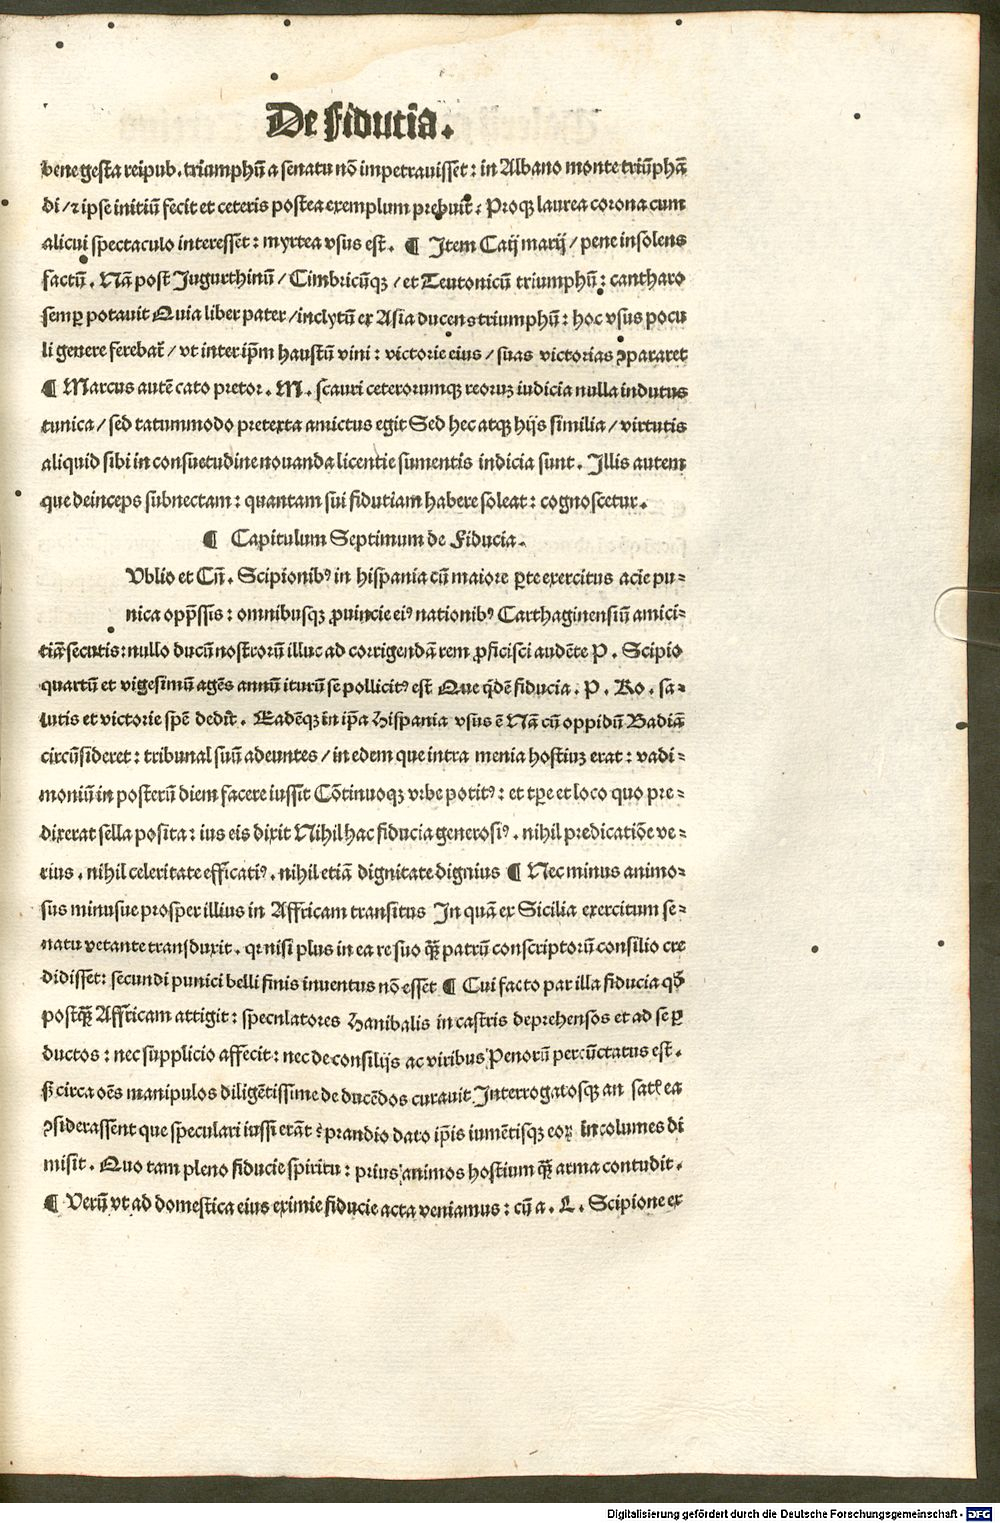 De fiducia.
bene gesta reipub. triumphū a senatu nō impetrauisset: in Albano monte triūphā
di / ⁊ ipse initiū fecit et ceteris postea exemplum prebuit. Proqꝫ laurea corona cum
alicui spectaculo interesset: myrtea vsus est. ¶ Item Caij marij / pene insolens
factū. Nā post Jugurthinū / Cimbricūqꝫ / et Teutonicū triumphū: cantharo
semꝑ potauit Quia liber pater / inclytū ex Asia ducens triumphū: hoc vsus pocu
li genere ferebat̃ / vt inter ip̄m haustū vini: victorie eius / suas victorias ꝯpararet
¶ Marcus autē cato pretor. M. scauri ceterorumqꝫ reoruꝫ iudicia nulla indutus
tunica / sed tātummodo pretexta amictus egit Sed hec atqꝫ hijs similia / virtutis
aliquid sibi in consuetudine nouanda licentie sumentis indicia sunt. Illis autem
que deinceps subnectam: quantam sui fidutiam habere soleat: cognoscetur.
¶ Capitulum Septimum de Fiducia.
Vblio et Cn̄. Scipionibꝰ in hispania cū maiore ꝑte exercitus acie pu-
nica opp̄ssis: omnibusqꝫ ꝓuincie eiꝰ nationibꝰ Carthaginensiū amici-
tiā secutis: nullo ducū nostrorū illuc ad corrigendā rem ꝓficisci audēte P. Scipio
quartū et vigesimū agēs annū iturū se pollicitꝰ est Que q̄dē fiducia. P. Ro. sa-
lutis et victorie spē dedit. Eadēqꝫ in ip̄a Hispania vsus ē Nā cū oppidū Badiā
circūsideret: tribunal suū adeuntes / in edem que intra menia hostiuꝫ erat: vadi-
moniū in posterū diem facere iussit Cōtinuoqꝫ vrbe potitꝰ: et tp̄e et loco quo pre-
dixerat sella posita: ius eis dixit Nihil hac fiducia generosiꝰ. nihil predicatiōe ve-
rius. nihil celeritate efficatiꝰ. nihil etiā dignitate dignius ¶ Nec minus animo-
sus minusue prosper illius in Affricam transitus In quā ex Sicilia exercitum se-
natu vetante transduxit. qꝛ nisi plus in ea re suo q̄ꝫ patrū conscriptorū consilio cre
didisset: secundi punici belli finis inuentus nō esset ¶ Cui facto par illa fiducia qđ
postq̄ꝫ Affricam attigit: speculatores Hanibalis in castris deprehensos et ad se ꝑ
ductos: nec supplicio affecit: nec de consilijs ac viribus Penorū percūctatus est.
sꝫ circa oēs manipulos diligētissime de ducēdos curauit Interrogatosqꝫ an satl̄ ea
ꝯsiderassent que speculari iussi erāt: prandio dato ip̄is iumētisqꝫ eoꝝ incolumes di
misit. Quo tam pleno fiducie spiritu: prius animos hostium q̄ꝫ arma contudit.
¶ Verū vt ad domestica eius eximie fiducie acta veniamus: cū a. L. Scipione ex
Digitalisierung gefördert durch die Deutsche Forschungsgemeinschaft - DFG